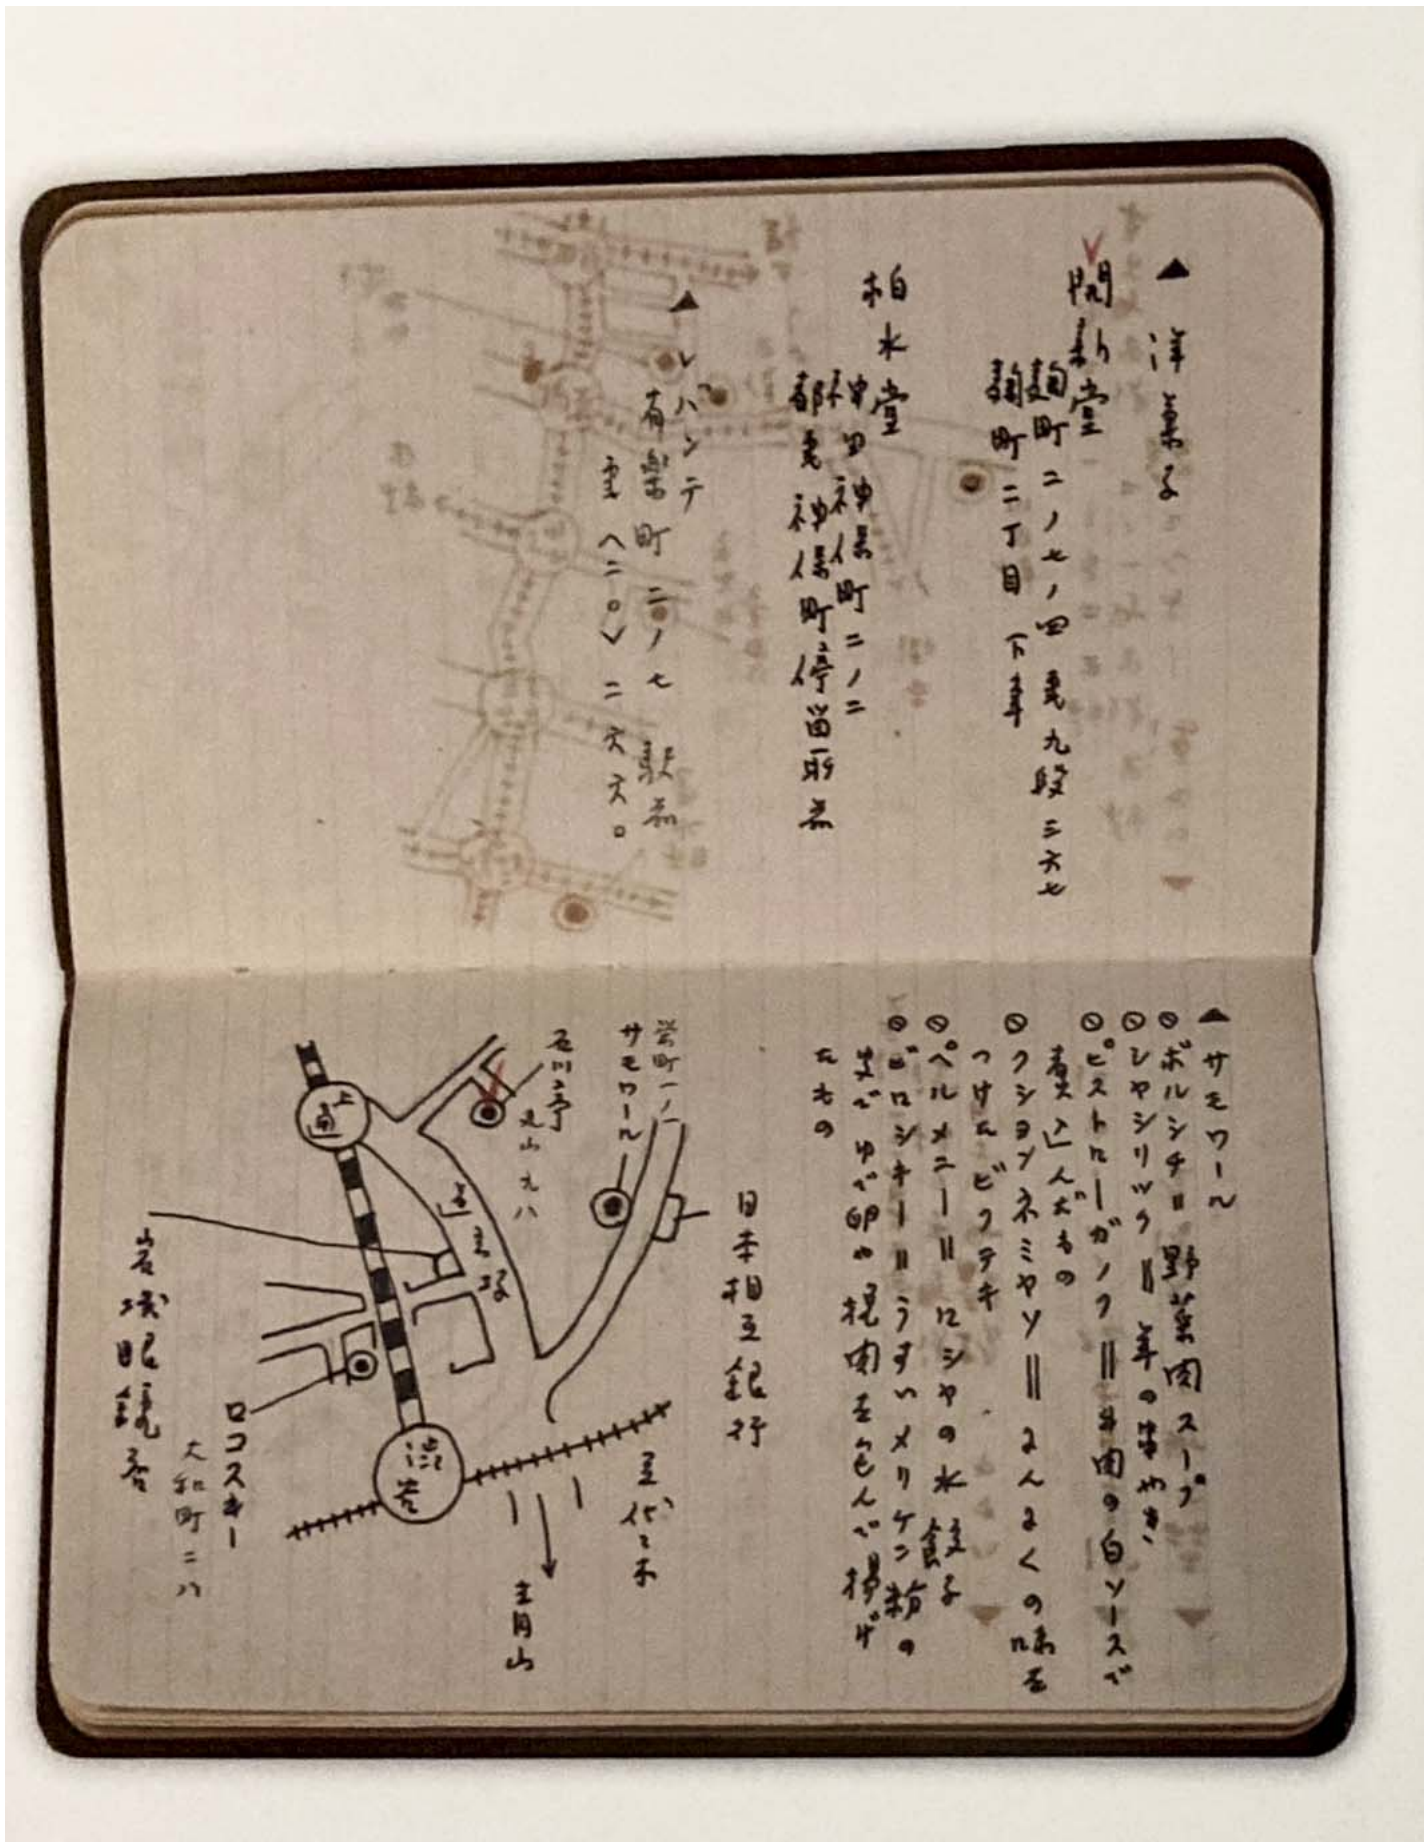 ▲洋菓子
開新堂
麹町二ノ七ノ四 電九段三六七
麹町二丁目下車
柏水堂
神田神保町二ノ二
都電神保町停留所前
▲レバンテ
有楽町二ノ七 駅前
電〈二〇〉二六六〇
▲サモワール
ボルシチ=野菜肉スープ
シヤシリック=羊の串やき
ビストローガノフ=牛肉の白ソースで
煮込んだもの
クションネミヤソ=にんにくの味を
つけたビフテキ
ペルメニー=ロシヤの水餃子
ピロシキー=うすいメリケン粉の
皮でゆで卵や挽肉を包んで揚げ
たもの
栄町一ノ一
サモワール
石川亭
丸山九八
日本相互銀行
上通
道玄坂
至代々木
渋谷
至青山
岩城眼鏡店
ロゴスキー
大和町二八